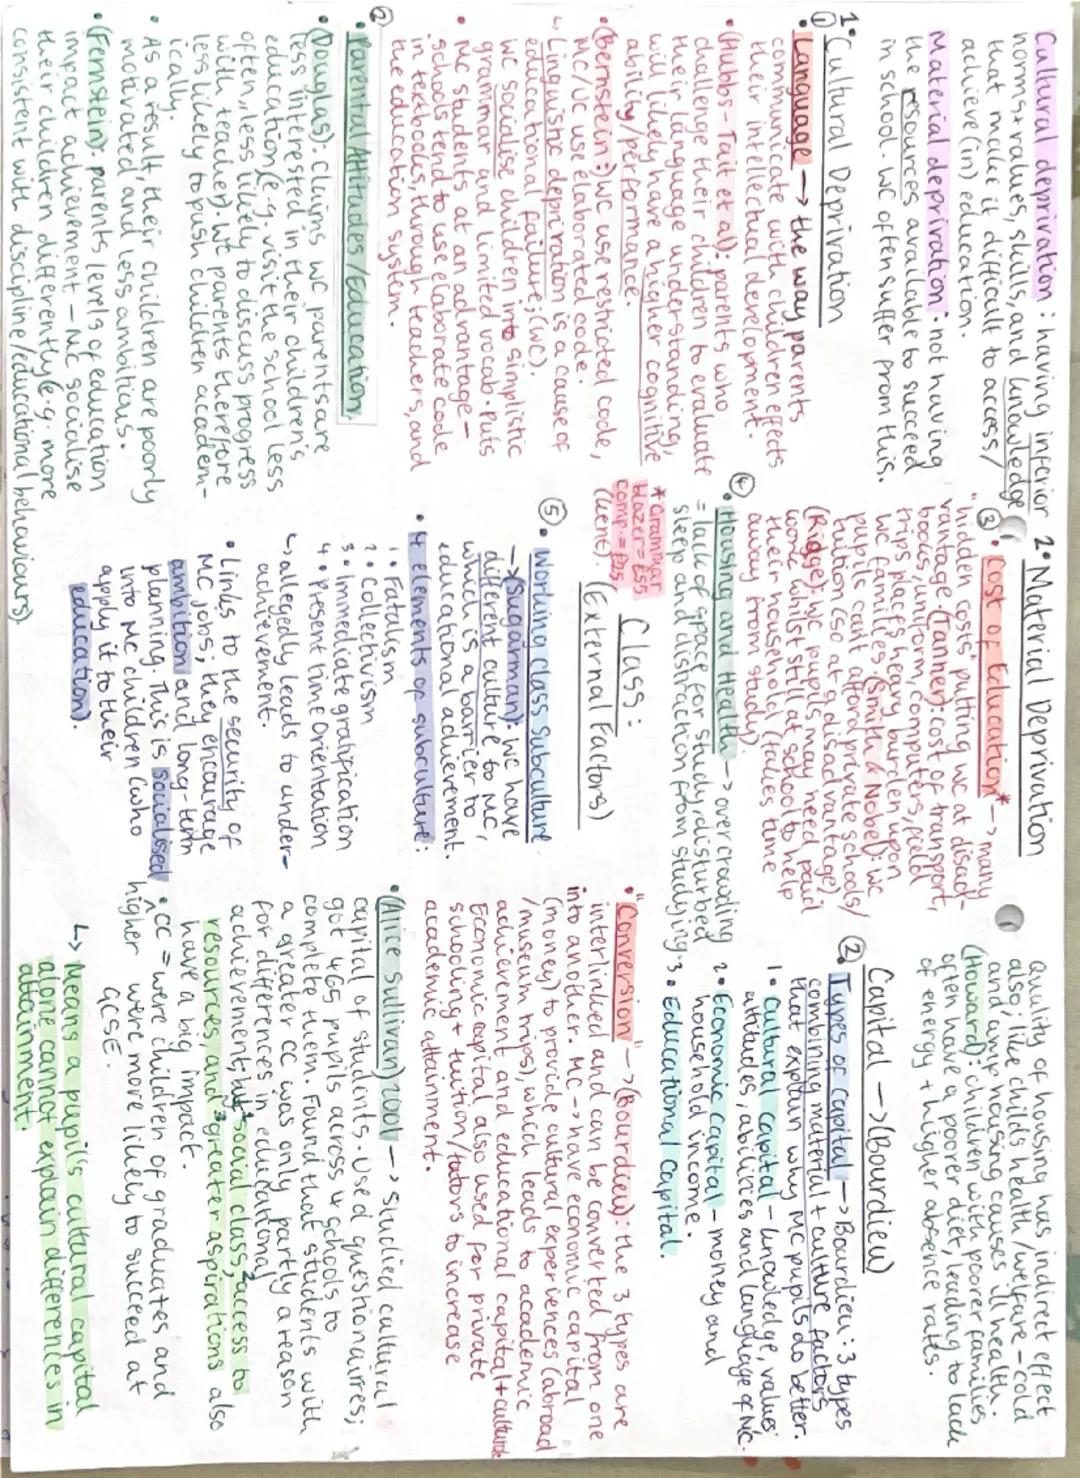 Cultural deprivation: having inferior
norms + values, skills, and knowledge
that make it difficult to access/
achieve (in) education.
Material deprivation: not having
the resources available to succeed
in school. WC often suffer from this.
1. Cultural Deprivation
① • Language → the way parents
communicate with children effects
their intellectual development.
• (Hubbs-Tait et al): parents who
challenge their children to evaluate
their language understanding,
will likely have a higher cognitive
ability/performance.
• (Bernstein): WC use restricted code,
MC/UC use elaborated code.
↳ Linguistic deprivation is a cause of
educational failure; (WC).
WC socialise children into simplistic
grammar and limited vocab. Puts
• MC students at an advantage -
schools tend to use elaborate code
in textbooks, through teachers, and
the education system.
② • Parental Attitudes/Education.
• (Douglas): Claims WC parents are
less interested in their children's
education (e.g. visit the school less
often, less likely to discuss progress
with teacher). WC parents therefore
less likely to push children academ-
ically.
• As a result, their children are poorly
motivated and less ambitious.
• (Fernstein): parents levels of education
impact achievement - MC socialise
their children differently (e.g. more
consistent with discipline/educational behaviours).
2. Material Deprivation
③ • Cost of Education* → many
"hidden costs" putting WC at disad-
vantage. (Tanner): cost of transport,
books, uniform, computers, field
trips places heavy burden upon
WC families. (Smith & Noble): WC
pupils can't afford private schools/
tuition (so at a disadvantage)
(Ridge): WC pupils may need paid
work whilst still at school to help
their household (takes time
away from study).
④ • Housing and Health → overcrowding
= lack of space for study, disturbed
sleep and distraction from studying.
*Grammar
blazer = £55
comp. = £25
(uent).
Class:
(External Factors)
⑤ • Working class Subculture
→ (Sugarman): WC have
different culture to MC,
which is a barrier to
educational achievement.
• 4 elements of subculture:
1. Fatalism
2. Collectivism
3. Immediate gratification
4. Present time Orientation
↳ allegedly leads to under-
achievement.
• Links to the security of
MC jobs; they encourage
ambition and long-term
planning. This is socialised
into MC children (who
apply it to their
education).
Quality of housing has indirect effect
also; like childs health/welfare - cold
and damp housing causes ill health.
(Howard): children with poorer families
often have a poorer diet, leading to lack
of energy + higher absence rates.
Capital → (Bourdieu)
② • Types of capital → Bourdieu: 3 types
combining material + culture factors
that explain why MC pupils do better.
1. Cultural capital - knowledge, values
attitudes, abilities and language of MC.
2. Economic capital - money and
household income.
3. Educational capital.
• "Conversion" → (Bourdieu): the 3 types are
interlinked and can be converted from one
into another. MC → have economic capital
(money) to provide cultural experiences (abroad
/museum trips), which leads to academic
achievement and educational capital + cultural
Economic capital also used for private
schooling + tuition/tutors to increase
academic attainment.
• (Alice Sullivan) 2001 → Studied cultural
capital of students. Used questionnaires;
got 465 pupils across 4 schools to
complete them. Found that students with
a greater CC was only partly a reason
for differences in educational
achievements, but ¹social class, ²access to
resources and ³greater aspirations also
have a big impact.
• ^CC = were children of graduates and
higher were more likely to succeed at
GCSE.
↳ Means a pupils cultural capital
alone cannot explain differences in
attainment.